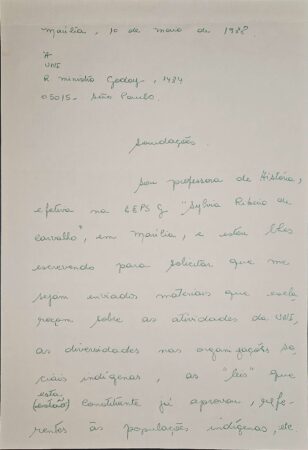 Marília, 10 de maio de 1988.
À
UNI
R. Ministro Godoy, 1484
05015 - São Paulo.
Saudações.
Sou professora de História,
efetiva na EEPSG "Sylvia Ribeiro de
Carvalho", em Marília, e estou lhes
escrevendo para solicitar que me
sejam enviados materiais que escla
reçam sobre as atividades da UNI,
as diversidades nas organizações so
ciais indígenas, as "leis" que
esta
(estão) Constituinte já aprovou, refe-
rentes às populações indígenas, etc.